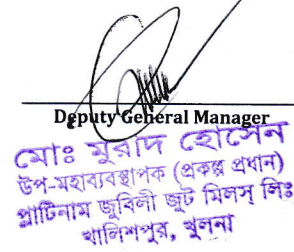 Deputy General Manager
মোঃ মুরাদ হোসেন
উপ-মহাব্যবস্থাপক (প্রকল্প প্রধান)
প্লাটিনাম জুবিলী জুট মিলস্ লিঃ
খালিশপুর, খুলনা